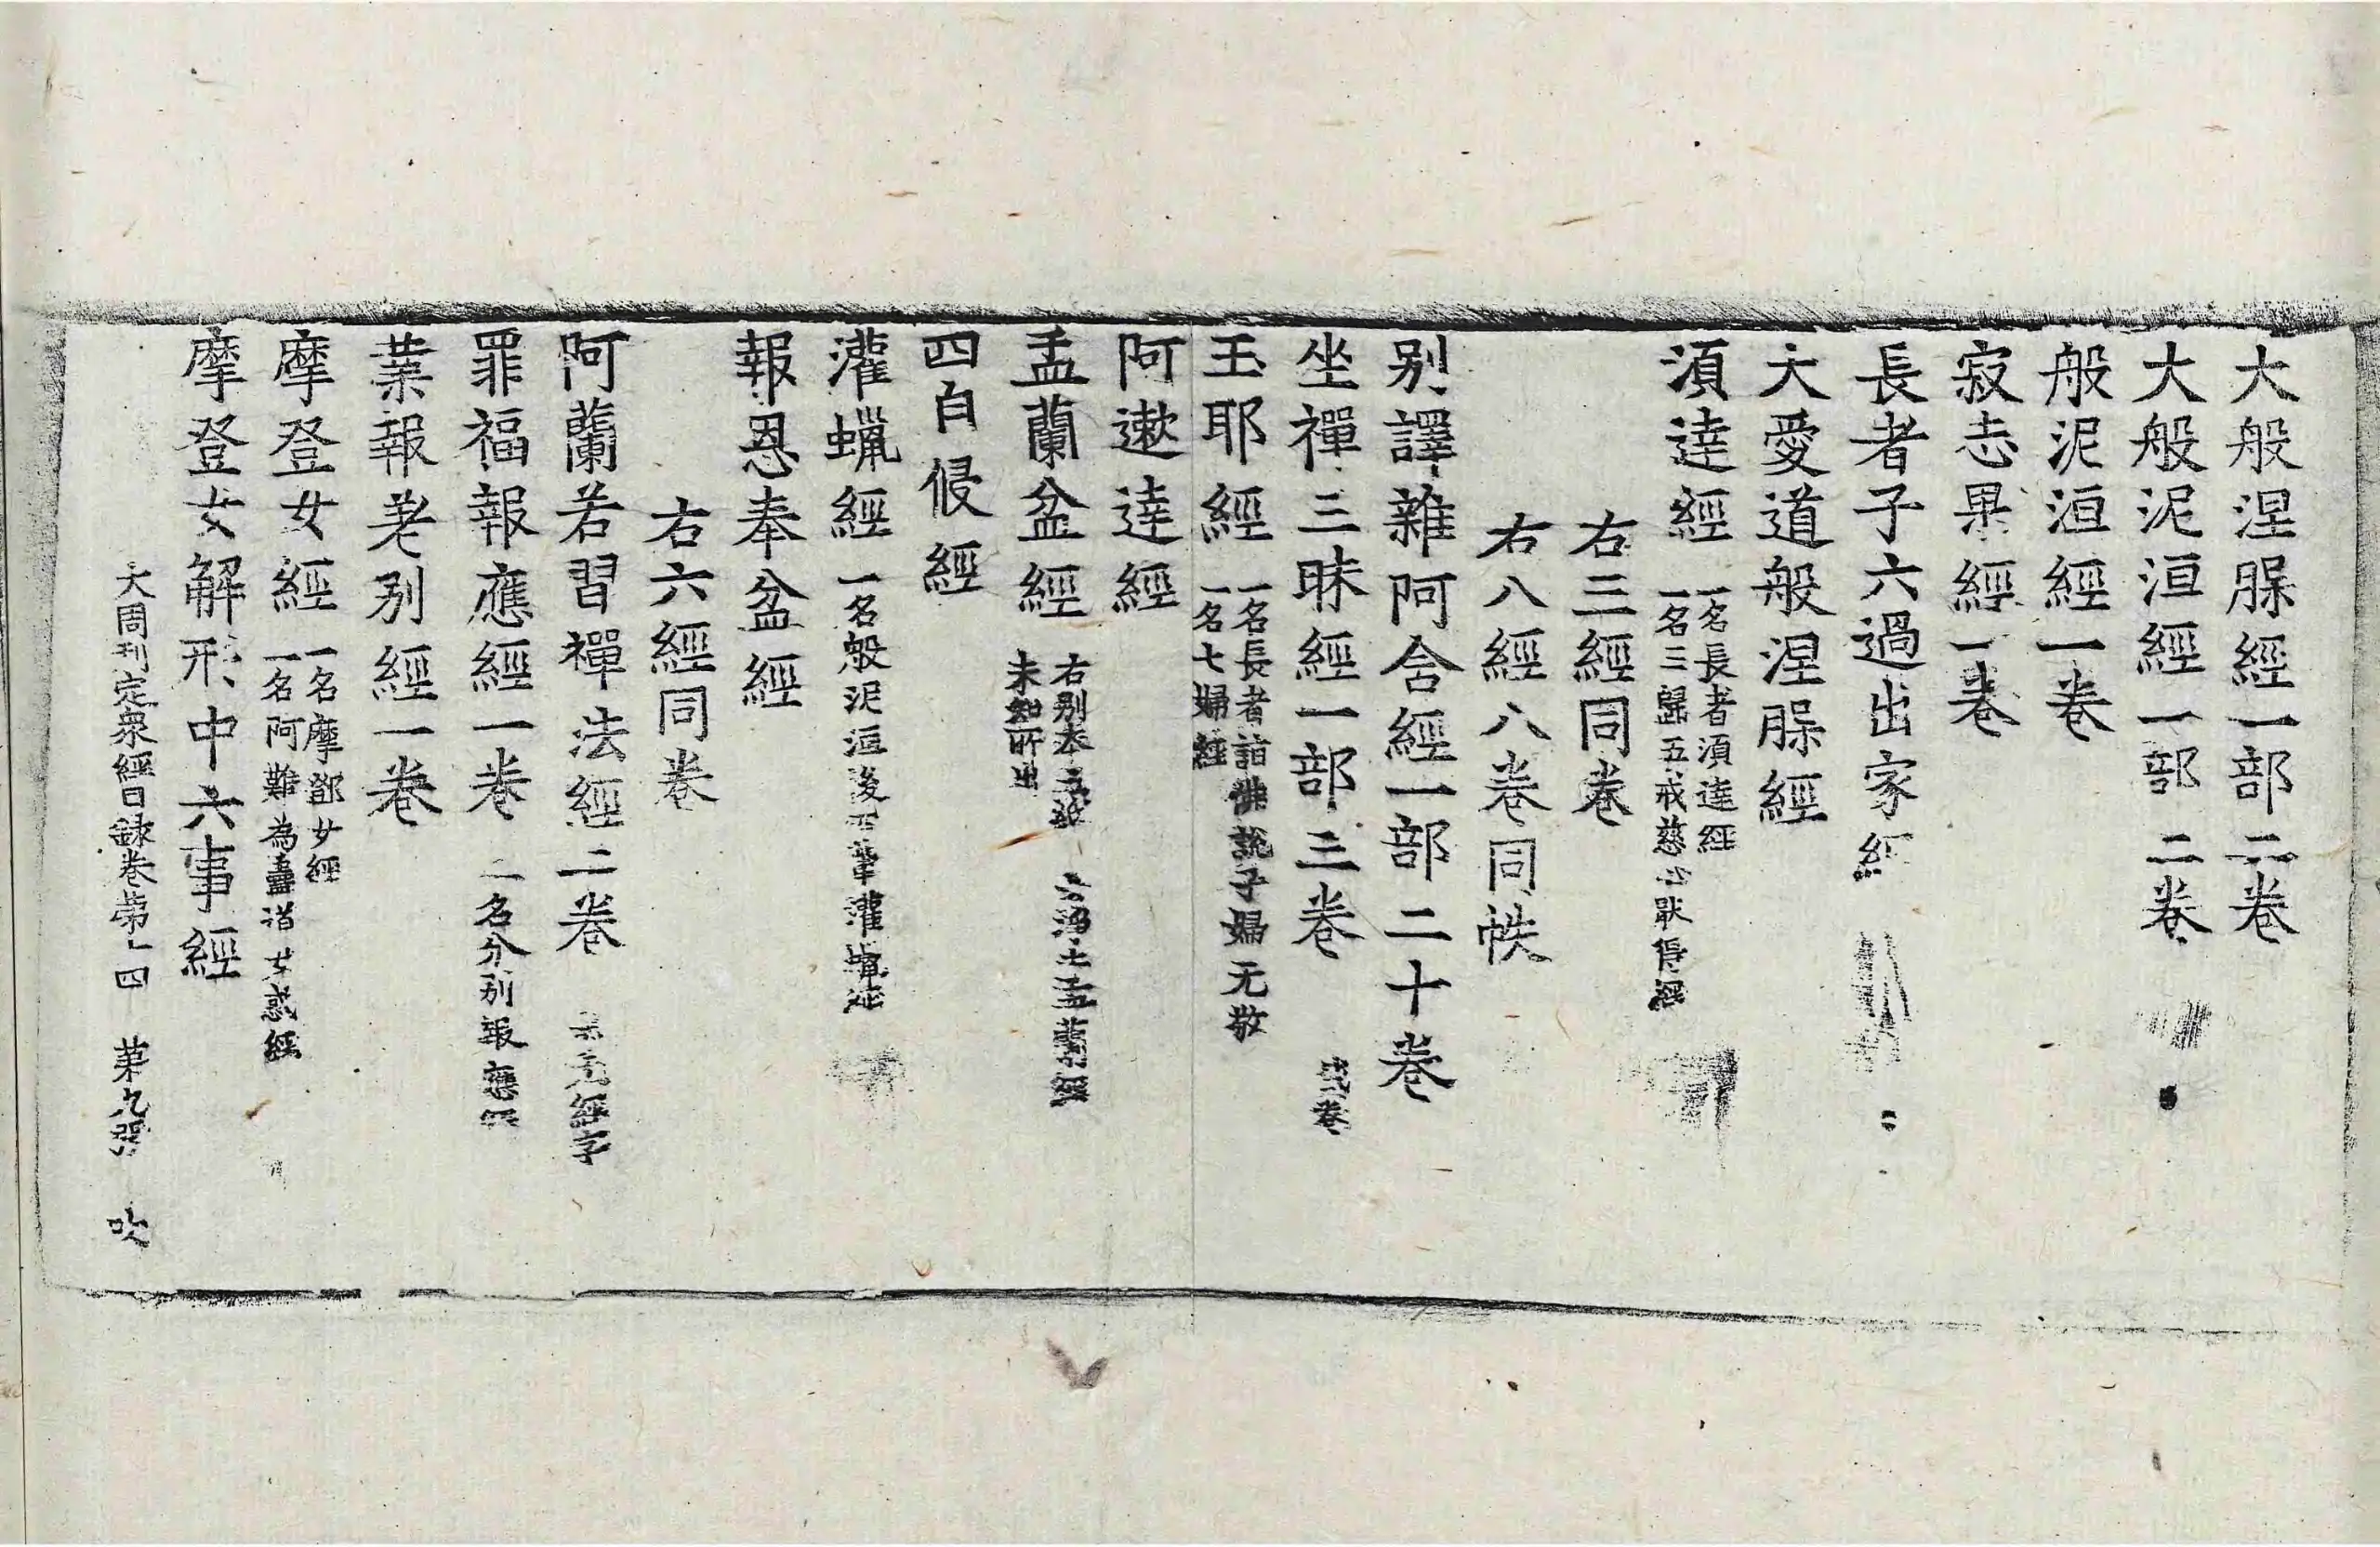 大般涅脲經一部二卷
大般泥洹經一部二卷
般泥洹經一卷
寂志果經一卷
長者子六過出家經
大愛道般涅脲經
湏達經 一名長者湏達經
一名三歸五戒慈心猒得經
右三經同卷
右八經八卷同帙
别譯雜阿含經一部二十卷
坐禪三昧經一部三卷
玉耶經 一名長者詣佛說子婦无敬
一名七婦經
阿遬達經
盂蘭盆經
未知所出
四自侵經
灌蠟經 一名般泥洹後 灌蠟經
報恩奉盆經
右六經同卷
阿蘭若習禪法經二卷 經字
罪福報應經一卷 一名分别報應經
業報差别經一卷
摩登女經 一名摩鄧女經
一名阿難為蠱道女惑經
摩登女解形中六事經
大周刊定衆經目録卷苐十四 苐九張 吹